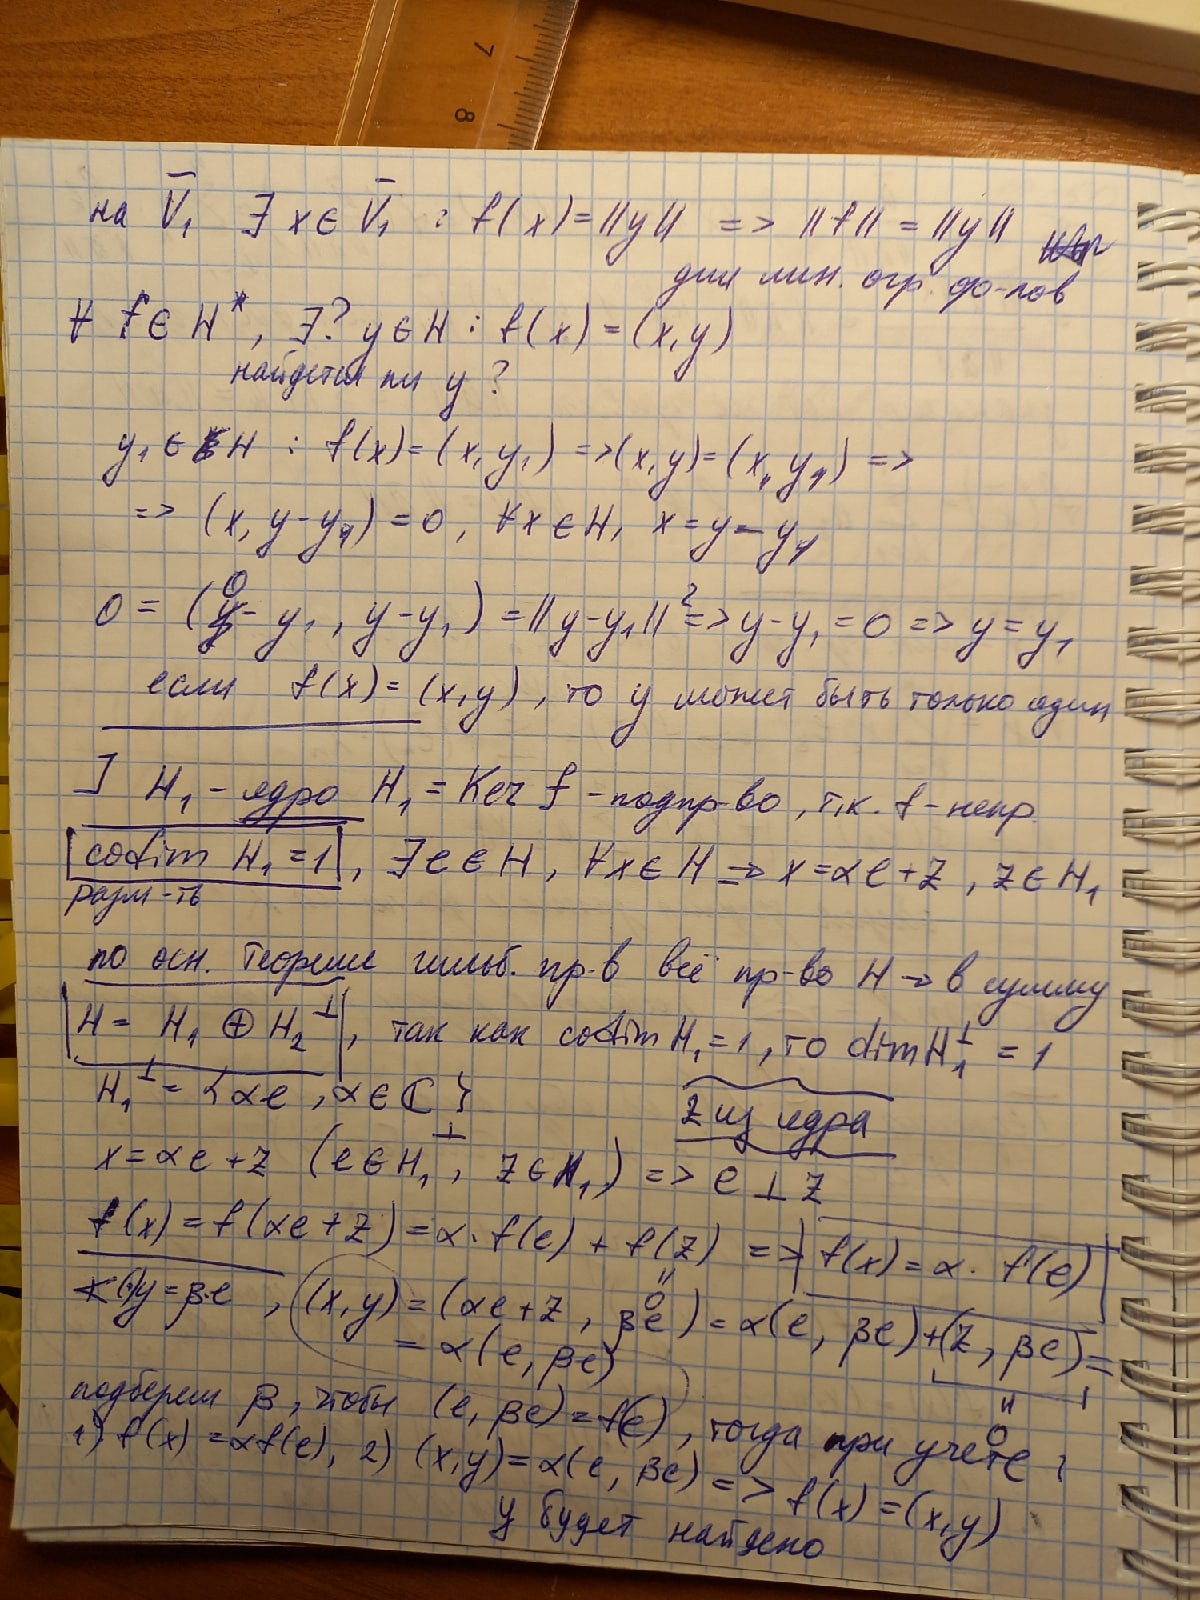 7
8
на V̅₁ ∃ x ∈ V̅₁ : f(x) = ||y|| => ||f|| = ||y||
для лин. огр. фо-лов
∀ f ∈ H*, ∃? y ∈ H : f(x) = (x, y)
найдется ли y ?
y₁ ∈ H : f(x) = (x, y₁) => (x, y) = (x, y₁) =>
=> (x, y - y₁) = 0, ∀x ∈ H, x = y - y₁
0 = (y - y₁, y - y₁) = ||y - y₁||² => y - y₁ = 0 => y = y₁
если f(x) = (x, y), то y может быть только один
] H₁ - ядро H₁ = Ker f - подпр-во, т.к. f - непр.
codim H₁ = 1, ∃ e ∈ H, ∀x ∈ H => x = αe + z, z ∈ H₁
разм-ть
по осн. теореме гильб. пр-в всё пр-во H → в сумму
H = H₁ ⊕ H₂^⊥, так как codim H₁ = 1, то dim H₁^⊥ = 1
H₁^⊥ = {αe, α ∈ ℂ}
z из ядра
x = αe + z (e ∈ H₁^⊥, z ∈ H₁) => e ⊥ z
f(x) = f(αe + z) = α · f(e) + f(z) => f(x) = α · f(e)
"0
y = βe, (x, y) = (αe + z, βe) = α(e, βe) + (z, βe) =
= α(e, βe)
"0
подберем β, чтобы (e, βe) = f(e), тогда при учете :
1) f(x) = αf(e), 2) (x, y) = α(e, βe) => f(x) = (x, y)
y будет найдено